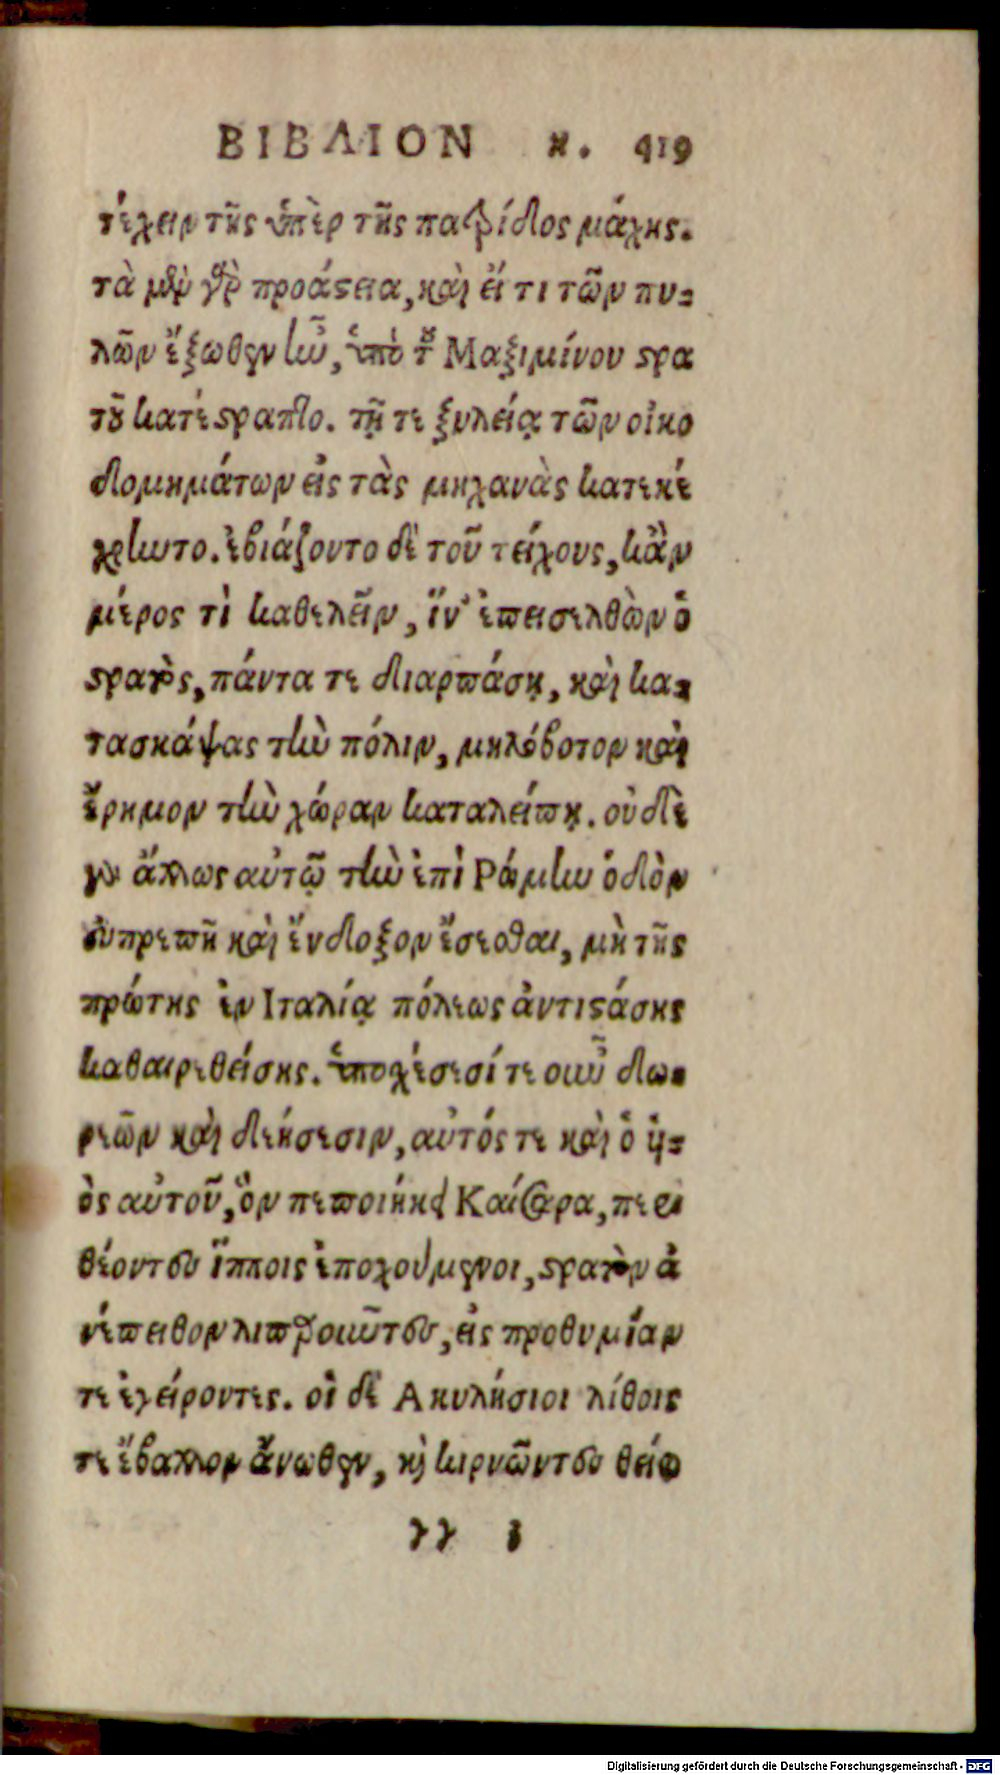 ΒΙΒΛΙΟΝ η. 419
τέχειν τῆς ὑπὲρ τῆς πατρίδος μάχης.
τὰ μὲν γὰρ προάστεια, καὶ εἴ τι τῶν πυ-
λῶν ἔξωθεν ἦν, ὑπὸ τοῦ Μαξιμίνου στρα
τοῦ κατέστραπτο. τῇ τε ξυλείᾳ τῶν οἰκο
δομημάτων εἰς τὰς μηχανὰς κατεκέ
χρηντο. ἐβιάζοντο δὲ τοῦ τείχους, κἂν
μέρος τὶ καθελεῖν, ἵν' ἐπεισελθὼν ὁ
στρατὸς, πάντα τε διαρπάσῃ, καὶ κα-
τασκάψας τὴν πόλιν, μηλόβοτον καὶ
ἔρημον τὴν χώραν καταλείπῃ. οὐδὲ
γὰρ ἄλλως αὐτῷ τὴν ἐπὶ Ρώμην ὁδὸν
εὐπρεπῆ καὶ ἔνδοξον ἔσεσθαι, μὴ τῆς
πρώτης ἐν Ιταλίᾳ πόλεως ἀντιστάσης
καθαιρεθείσης. ὑποχέσεσί τε οὖν δω-
ρεῶν καὶ δεήσεσιν, αὐτός τε καὶ ὁ ὑ-
ὸς αὐτοῦ, ὃν πεποιήκει Καίσαρα, περι
θέοντες ἵπποις ἐποχούμενοι, στρατὸν ἀ
νέπειθον λιπαροῦντες, εἰς προθυμίαν
τε ἐγείροντες. οἱ δὲ Ακυλήσιοι λίθοις
τε ἔβαλλον ἄνωθεν, καὶ κιρνῶντες θείῳ
γγ 3
Digitalisierung gefördert durch die Deutsche Forschungsgemeinschaft - DFG